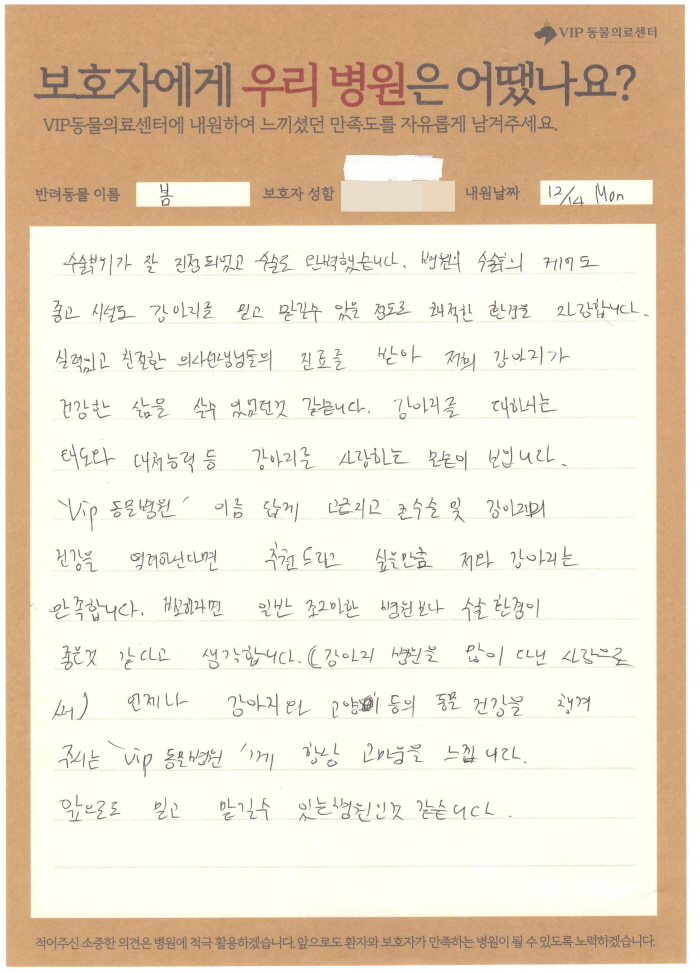 VIP 동물의료센터
보호자에게 우리 병원은 어땠나요?
VIP동물의료센터에 내원하여 느끼셨던 만족도를 자유롭게 남겨주세요.
반려동물 이름 봄 보호자 성함 내원날짜 12/14 Mon
수술부위가 잘 진정되었고 수술도 완벽했습니다. 병원의 수술의 케어도
좋고 시설도 강아지를 믿고 맡길수 있을 정도로 쾌적한 환경을 자랑합니다.
실력있고 친절한 의사선생님들의 진료를 받아 저희 강아지가
건강한 삶을 살수 있었던것 같습니다. 강아지를 대하시는
태도와 대처능력 등 강아지를 사랑하는 모습이 보입니다.
"Vip 동물병원" 이름 답게 고르고 수술 및 강아지의
건강을 염려하신다면 추천드리고 싶을만큼 저와 강아지는
만족합니다. 비교하자면 일반 조그마한 병원보다 수술 환경이
좋은것 같다고 생각합니다. (강아지 병원을 많이 다닌 사람으로
써) 언제나 강아지와 고양이 등의 동물 건강을 챙겨
주시는 "Vip 동물병원"께 항상 고마움을 느낍니다.
앞으로도 믿고 맡길수 있는 병원인것 같습니다.
적어주신 소중한 의견은 병원에 적극 활용하겠습니다. 앞으로도 환자와 보호자가 만족하는 병원이 될 수 있도록 노력하겠습니다.